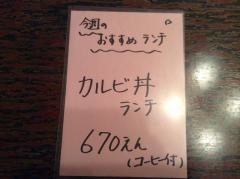 今週の
おすすめ ランチ
カルビ丼
ランチ
670えん
(コーヒー付)